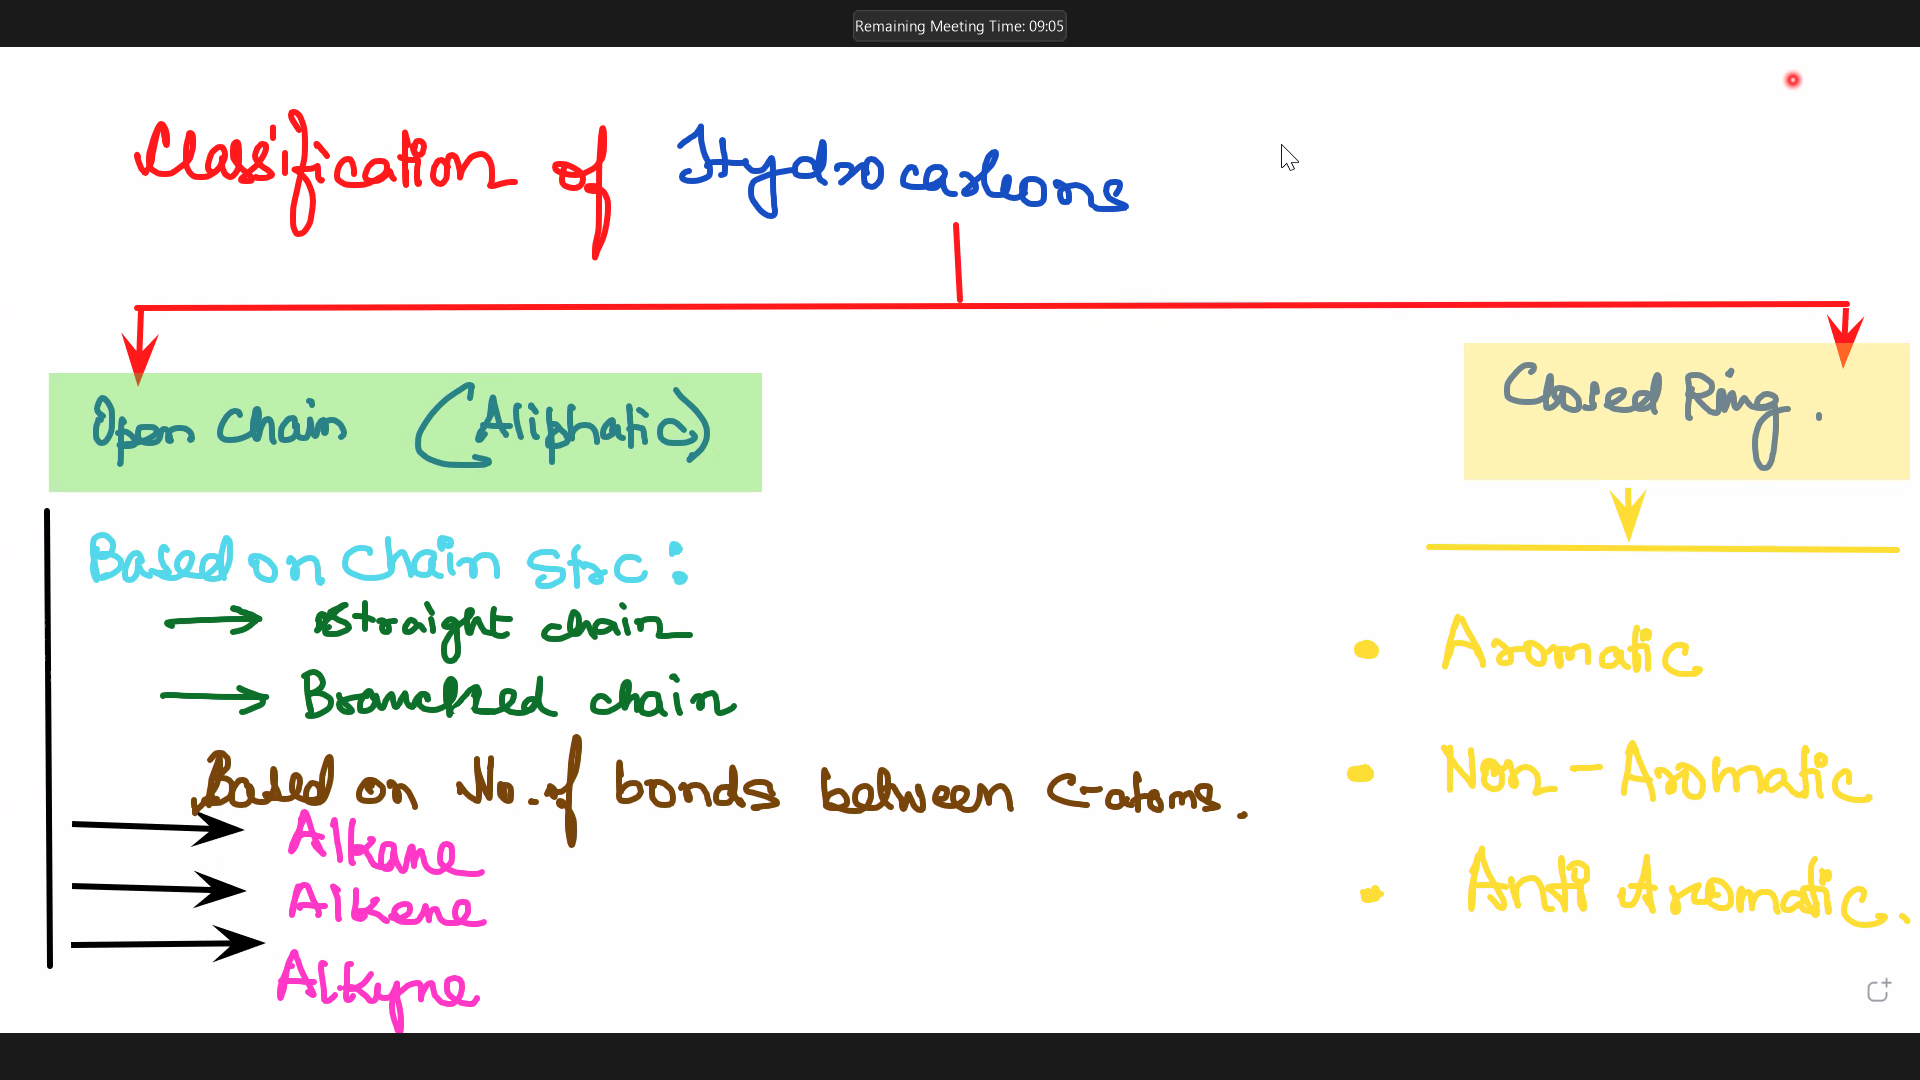 Remaining Meeting Time: 09:05
Classification of Hydrocarbons
Open chain (Aliphatic)
Closed Ring.
Based on chain strc:
→ straight chain
→ Branched chain
Based on No. of bonds between C-atoms.
Alkane
Alkene
Alkyne
• Aromatic
• Non-Aromatic
• Anti Aromatic.